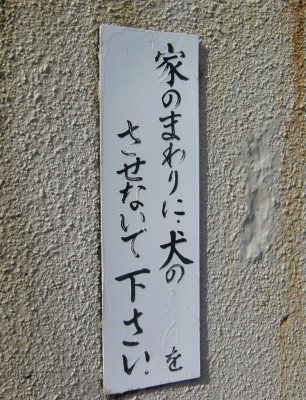 家のまわりに・犬の  を
させないで下さい.